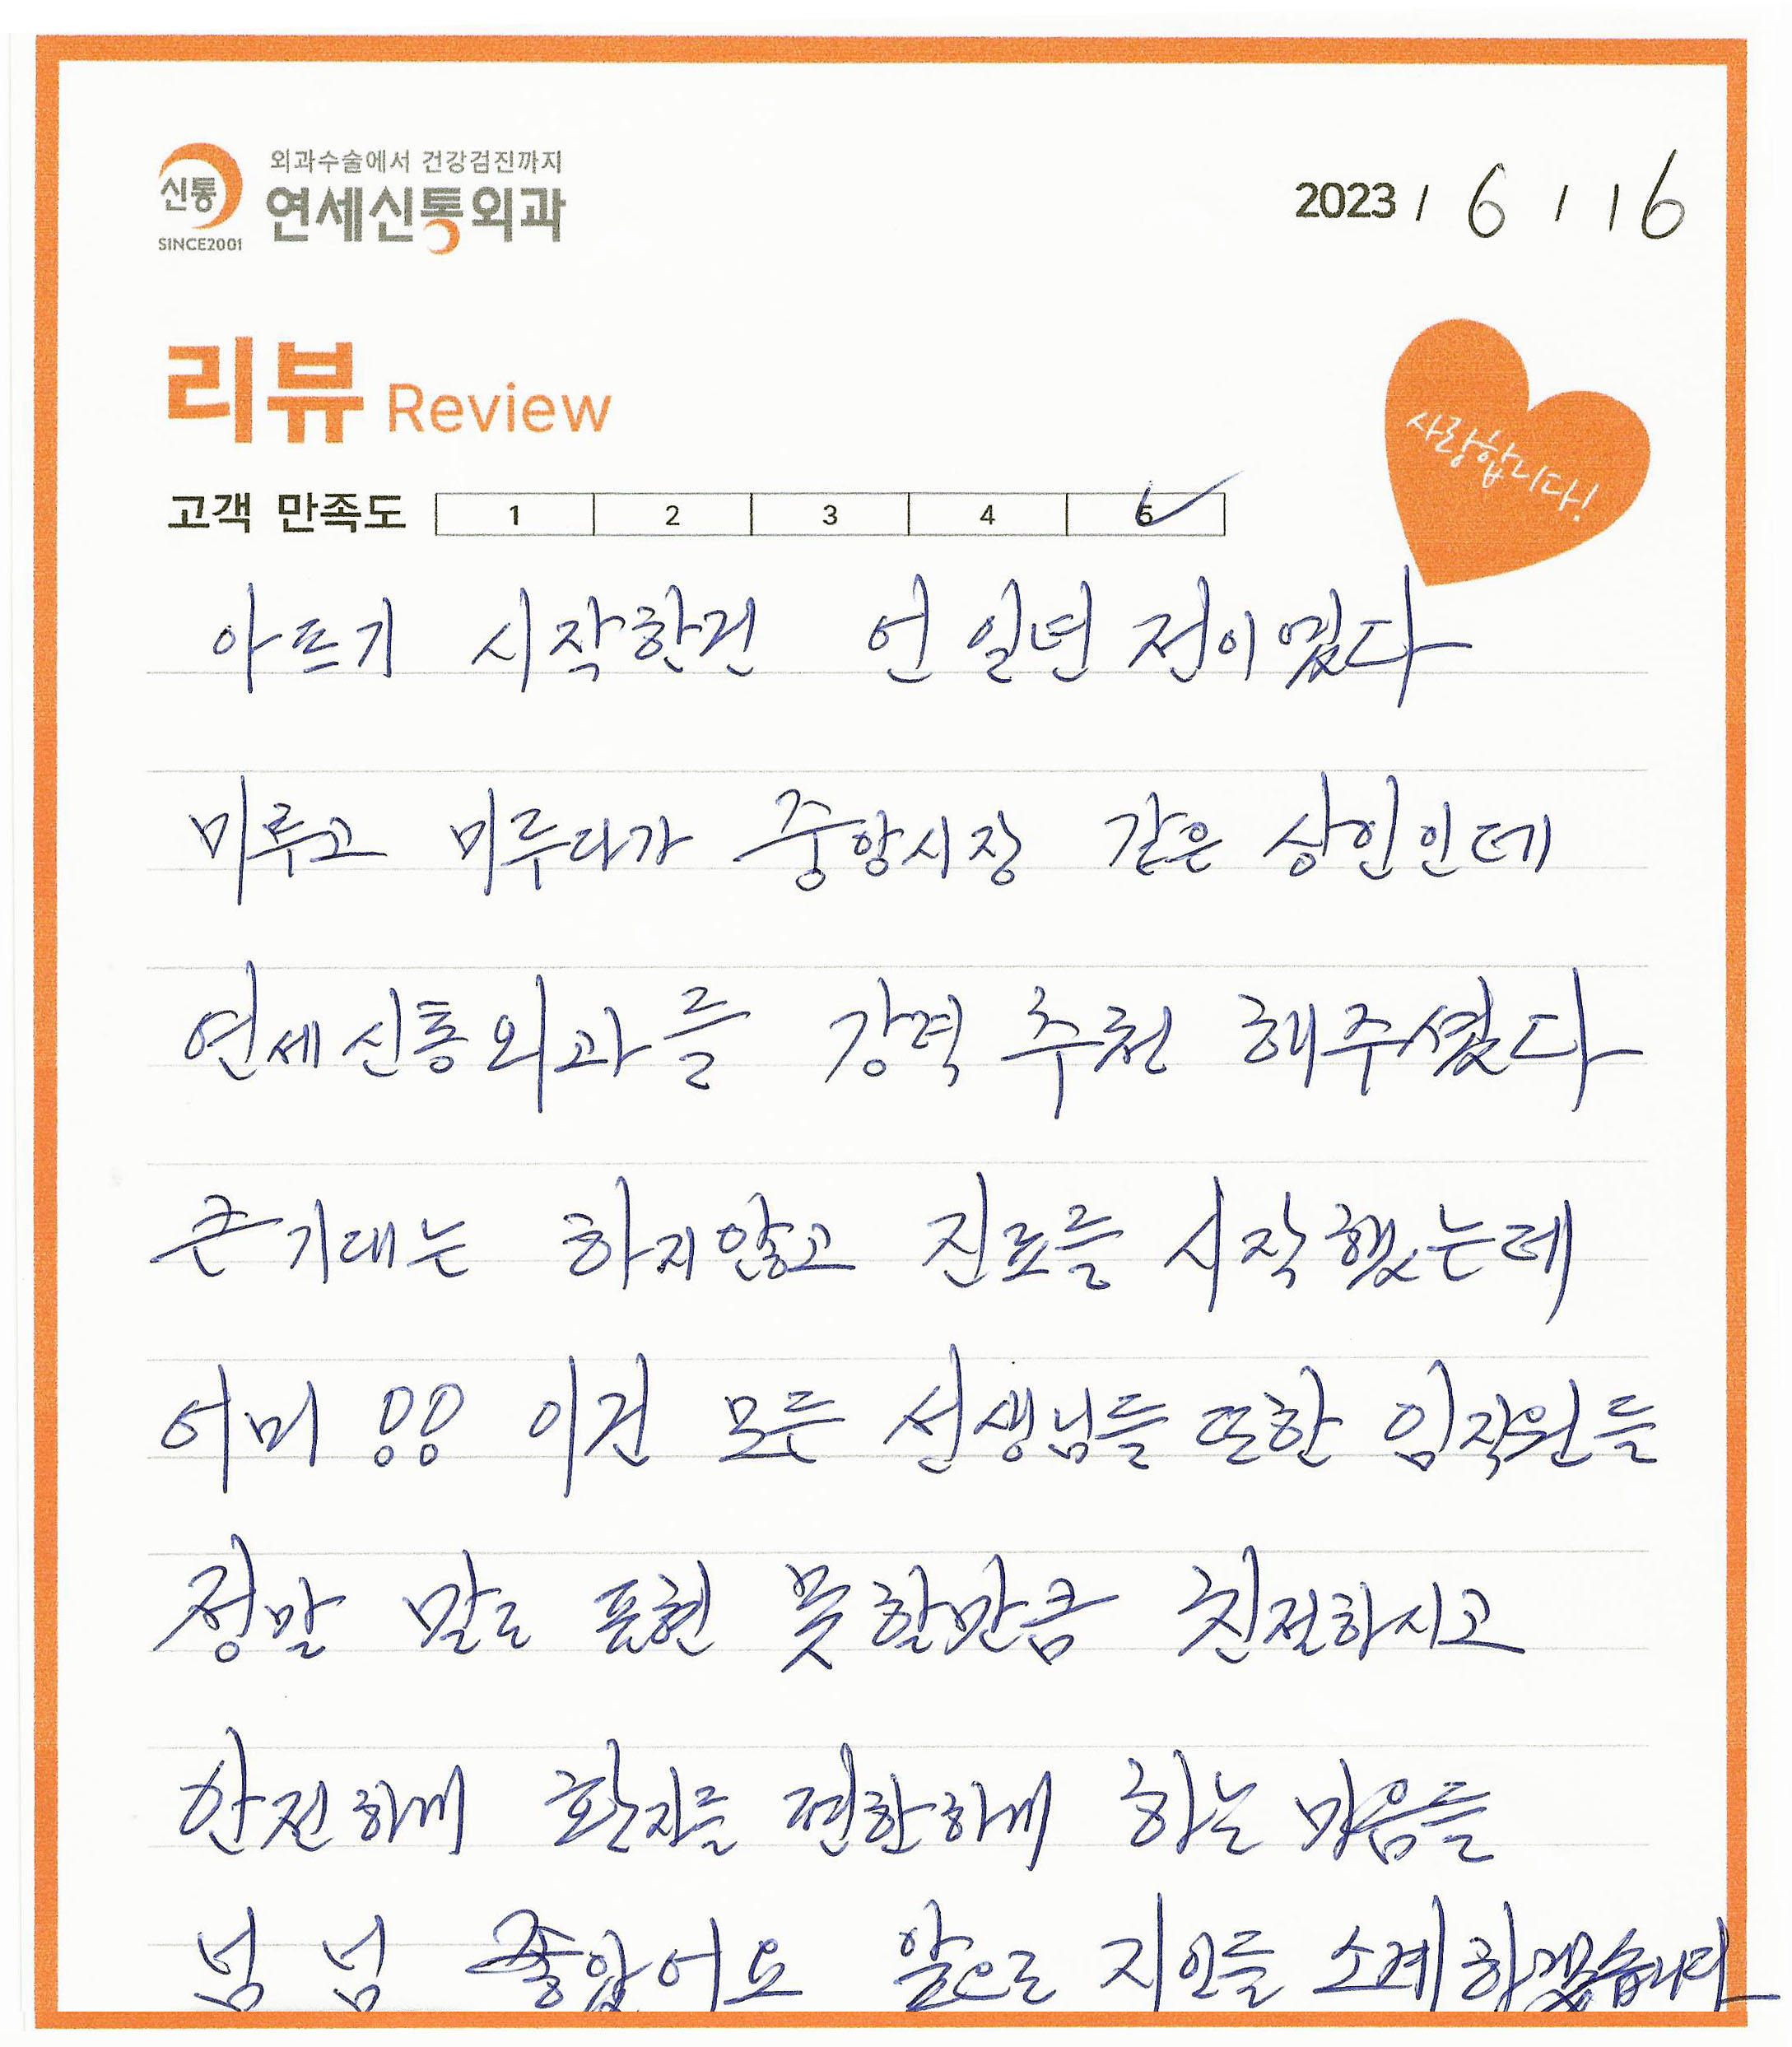 신통
SINCE2001
외과수술에서 건강검진까지
연세신통외과
2023 / 6 / 16
리뷰 Review
사랑합니다!
고객 만족도 1 2 3 4 5
아프기 시작한건 언 일년 전이였다
미루고 미루다가 중앙시장 같은 상인인데
연세신통외과를 강력 추천 해주셨다
큰기대는 하지않고 진료를 시작했는데
어미 이건 모든 선생님들 또한 임직원들
정말 말로 표현 못할만큼 친절하시고
안전하게 환자를 편한하게 하는 마음들
넘 넘 좋았어요 앞으로 지인들 소계하겠습니다